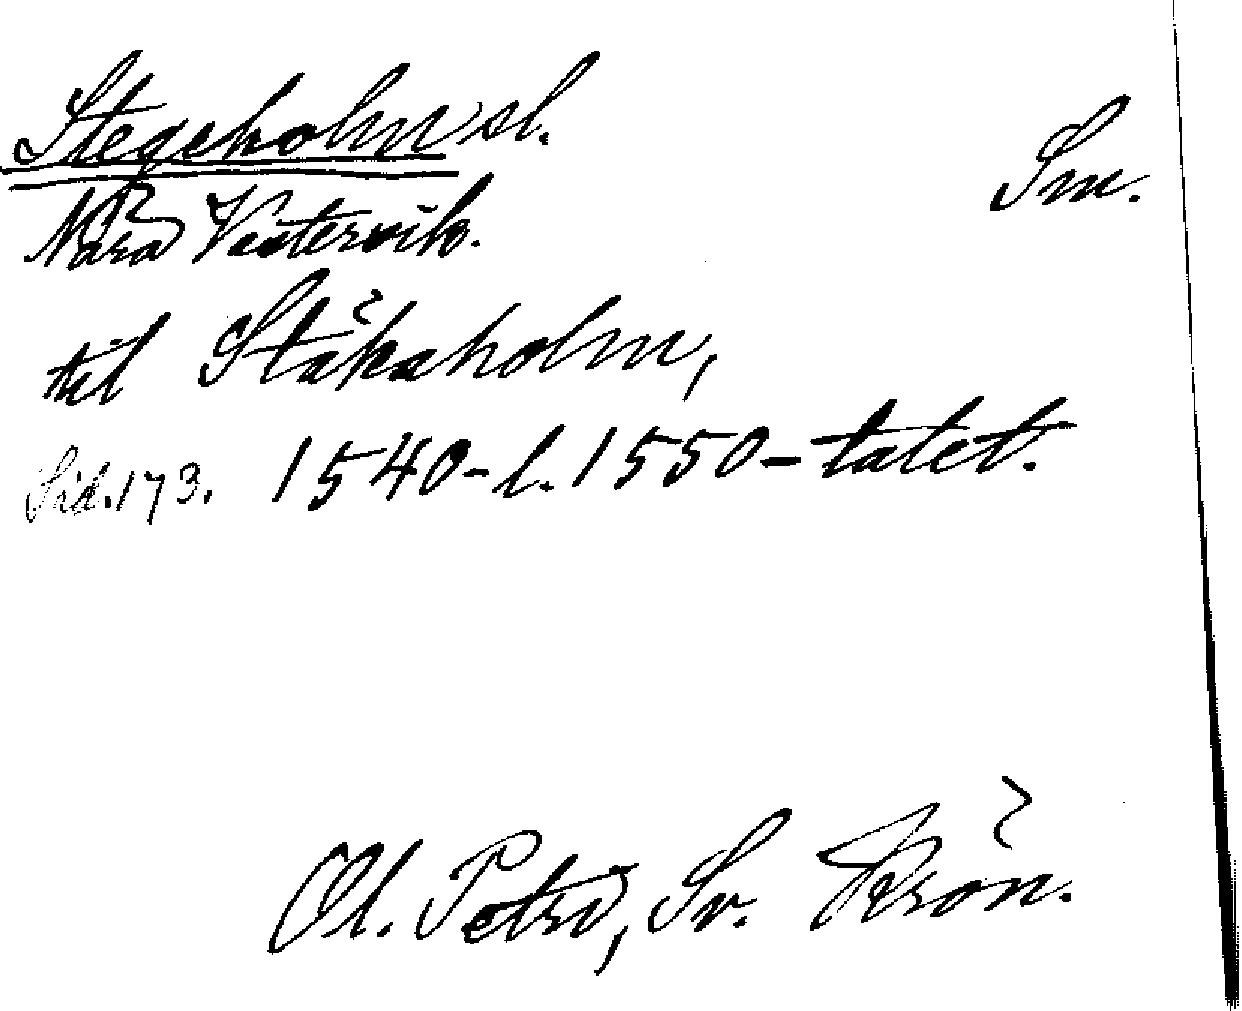 Stegeholm sl.
Sm.
Nära Västervik.
till Stäkaholm,
Sid. 173. 1540- l. 1550-talet.
Ol. Petri, Sv. Krön.